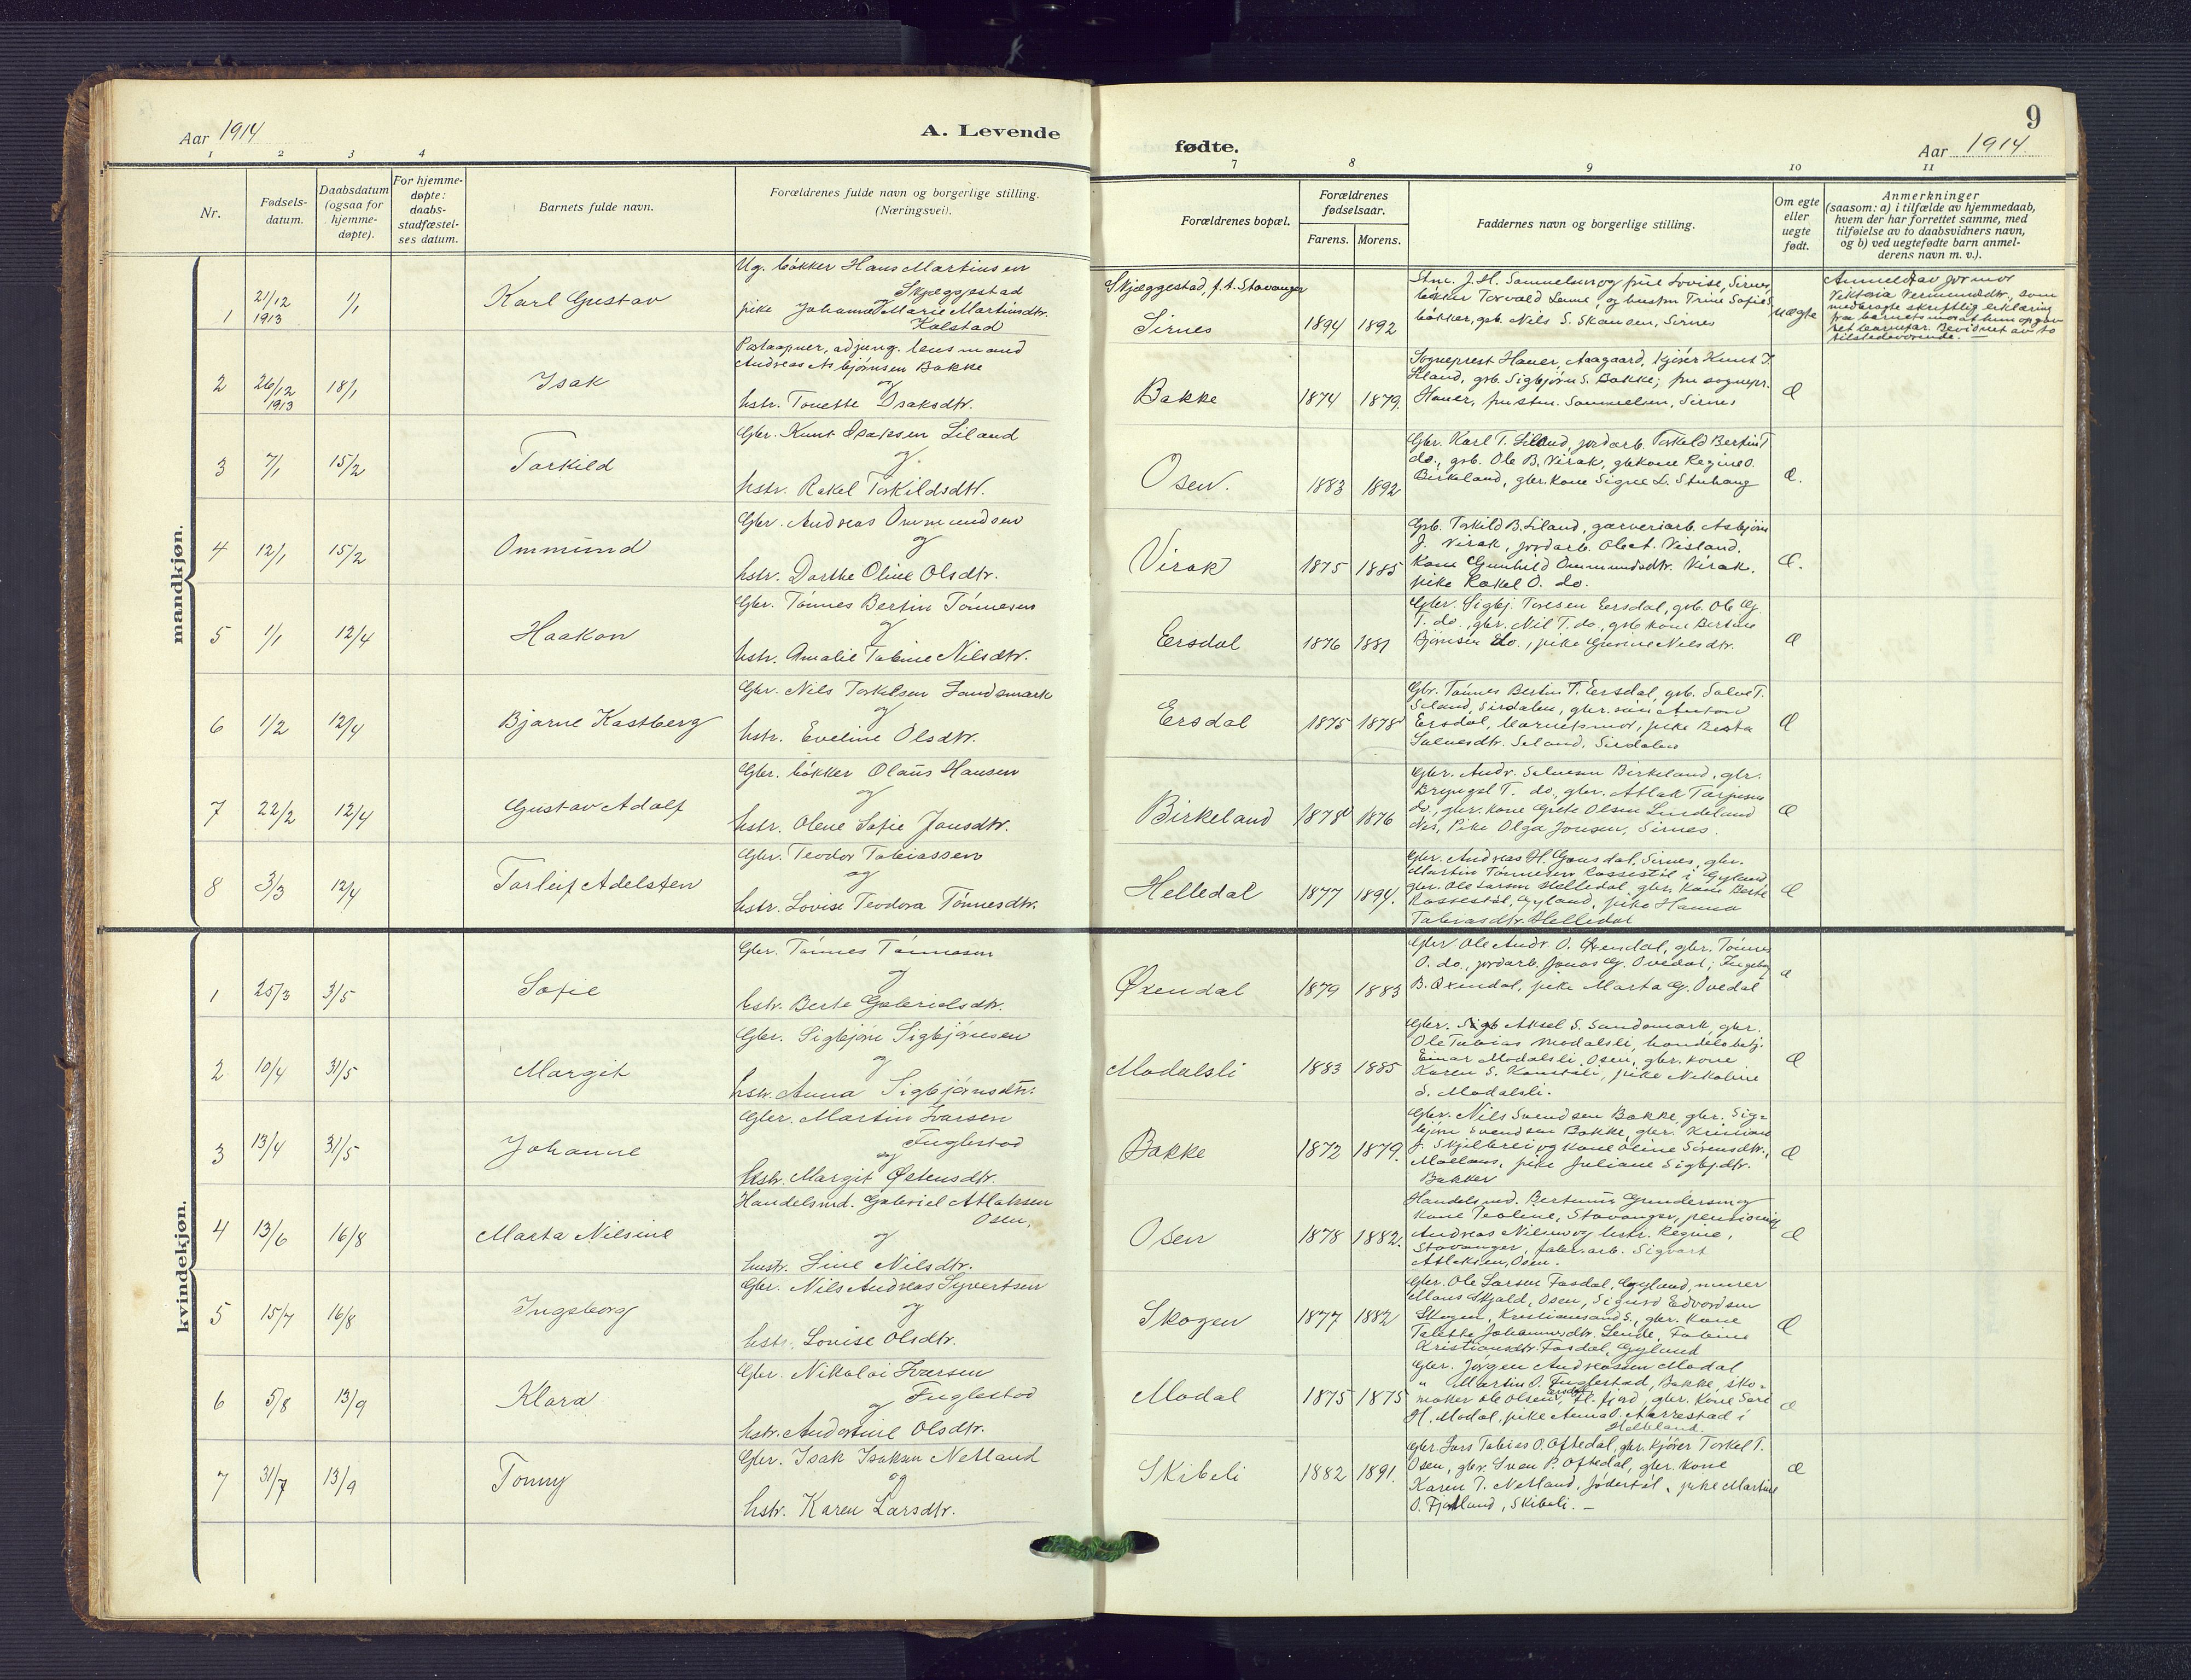 Aar 1914
A. Levende
1 2 3 4
Nr.
Fødsels-
datum.
Daabsdatum
(ogsaa for
hjemme-
døpte).
For hjemme-
døpte:
daabs-
stadfæstel-
ses datum.
Barnets fulde navn.
Forældrenes fulde navn og borgerlige stilling.
(Næringsvei).
mandkjøn.
1 21/12 1913 1/1 Karl Gustav
Ug. bökker Hans Martinsen
Skjeggestad
pike Johanne Marie Martinsdtr.
Kalstad
2 26/12 1913 18/1 Isak
Postaapner, adjung. lensmand
Andreas Asbjörnsen Bakke
og
hstr. Tonette Isaksdtr.
3 7/1 15/2 Torkild
Gbr. Knut Isaksen Liland
og
hstr. Rakel Torkildsdtr.
4 12/1 15/2 Ommund
Gbr. Andreas Ommundsen
og
hstr. Dorthe Oline Olsdtr.
5 1/1 12/4 Haakon
Gbr. Tönnes Bertin Tönnesen
og
hstr. Amalie Tobine Nilsdtr.
6 1/2 12/4 Bjarne Kastberg
Gbr. Nils Torkelsen Sandsmark
og
hstr. Eveline Olsdtr.
7 22/2 12/4 Gustav Adolf
Gbr. bökker Olaus Hansen
og
hstr. Olene Sofie Jonsdtr.
8 3/3 12/4 Torleif Adelsten
Gbr. Teodor Tobiassen
og
hstr. Lovise Teodora Tönnesdtr.
kvindekjøn.
1 25/3 3/5 Sofie
Gbr. Tönnes Tönnesen
og
hstr. Berte Gabrielsdtr.
2 10/4 31/5 Margit
Gbr. Sigbjörn Sigbjörnsen
og
hstr. Anna Sigbjörnsdtr.
3 13/4 31/5 Johanne
Gbr. Martin Ivarsen
Fuglestad
og
hstr. Margit Østensdtr.
4 13/6 16/8 Marta Nilsine
Handelsmd. Gabriel Atlaksen
Osen,
og
hustr. Sine Nilsdtr.
5 15/7 16/8 Ingeborg
Gbr. Nils Andreas Syvertsen
og
hstr. Lovise Olsdtr.
6 5/8 13/9 Klara
Gbr. Nikolai Ivarsen
Fuglestad
og
hstr. Andorine Olsdtr.
7 31/7 13/9 Tonny
Gbr. Isak Isaksen Netland
og
hstr. Karen Larsdtr.
fødte.
9
Aar 1914
7 8 9 10 11
Forældrenes bopæl.
Forældrenes
fødselsaar.
Farens. Morens.
Faddernes navn og borgerlige stilling.
Om egte
eller
uegte
født.
Anmerkninger
(saasom: a) i tilfælde av hjemmedaab,
hvem der har forrettet samme, med
tilføielse av to daabsvidners navn,
og b) ved uegtefødte barn anmel-
derens navn m. v.).
Skjæggestad, f. t. Stavanger
Sirnes 1894 1892
J. H. Samuelsen og frue Lovise, Sirnes,
bökker Torvald Lunne, og hustru Trine Sofie S.
bökker, gsb. Nils S. Skansen, Sirnes
uægte
Anmeldt av
Viktoria som
medbragte skriftlig erklæring
fra barnets mor at hun opgav
ret barnefar. Bevidnet av to
tilstedeværende. —
Bakke 1874 1879.
Sogneprest Hauer, Aagaard, kjører Knut I.
Liland, gsb. Sigbjörn S. Bakke; fru sognepr.
Hauer, fru Samuelsen, Sirnes
Æ
Osen. 1883 1892
Gbr. Karl T. Liland, jordarb. Torkeld Bertin T
do., gsb. Ole B. Virak, gbr kone Regine O.
Birkeland, gbr. kone Signe L. Stuhaug
Æ.
Virak 1875 1885
Gsb. Torkild B. Liland, garveriarb. Asbjörn
J. Virak, jordarb. Ole A. Visland,
Kone Gunhild Ommundsdtr. Virak,
pike Rakel O. do.
Æ.
Eersdal 1876 1881
Gbr. Sigbj. Toresen Eersdal, gsb. Ole G.
T. do., gbr. Nil T. do., gsb kone Bertine
Bjönsen do., pike Gurine Nilsdtr.
Æ
Ersdal 1875 1878
Gbr. Tönnes Bertin T. Eersdal, gsb. Salve T.
Seland, Sirdalen, gbr. sön Anton
Eersdal, barnets mor, pike Berta
Salvesdtr. Seland, Sirdalen
Æ
Birkeland 1878 1876
Gbr. Andr. Salvesen Birkeland, gbr.
Bryngel T. do., gbr. Atlak Tarjesen
do., gbr. kone Grete Olsen Lindeland
Nes, Pike Olga Jonsen, Sirnes.
Æ
Helledal 1877 1894.
Gbr. Andreas H. Gausdal, Sirnes, gbr.
Martin Tönnesen Rossestöl i Gyland,
gbr. Ole Larsen Helledal, gbr. kone Berte
Rossestöl, Gyland, pike Hanna
Tobiasdtr. Helledal
Æ
Øxendal 1879 1883
Gbr Ole Andr. O. Øxendal, gbr. Tönnes
O. do., jordarb. Jonas G. Ovedal; Ingeborg
B. Øxendal, pike Marta G. Ovedal
Æ
Modalsli 1883 1885
Gbr. Aksel S. Sandsmark, gbr.
Ole Tobias Modalsli, handelsbetj.
Einar Modalsli, Osen, gbr. kone
Karen S. Konstali, pike Nikoline
S. Modalsli.
Æ
Bakke 1872 1879.
Gbr. Nils Svendsen Bakke, gbr. Sig-
björn Svendsen Bakke, gbr. Kristian
J. Skjelbrei og kone Oline Sörensdtr.,
Moelans, pike Juliane Sigbj.dtr.
Bakker
Æ
Osen 1878 1882.
Handelsmd. Bertinus Gundersen og
kone Teoline, Stavanger, pensionist
Andreas Nilsen og hstr. Regine,
Stavanger, fabr.arb. Sigvart
Atlaksen, Osen.
Æ
Skogen 1877 1882
Gbr. Ole Larsen Fasdal, Gyland, murer
Mons Skjold, Osen, Sigurd Edvardsen
Skogen, Kristiansand S., gbr. kone
Talette Johannesdtr. Lende, Tobine
Kristiansdtr. Fasdal, Gyland
Æ
Modal 1875 1875
Gbr. Jörgen Andreassen Modal
" Martin I. Fuglestad, Bakke, sko-
maker Ole Olsen, Fl. fjord, gbr. kone Sara
H. Modal, pike Anna O. Aarrestad i
Helleland.
Æ
Skibeli 1882 1891.
Gbr. Lars Tobias O. Oftedal, gbr. kjörer Torkel T.
Osen, gbr. Sven P. Oftedal, gbr. kone
Karen T. Netland, Jödestöl, pike Martine
O. Fjotland, Skibeli. —
Æ